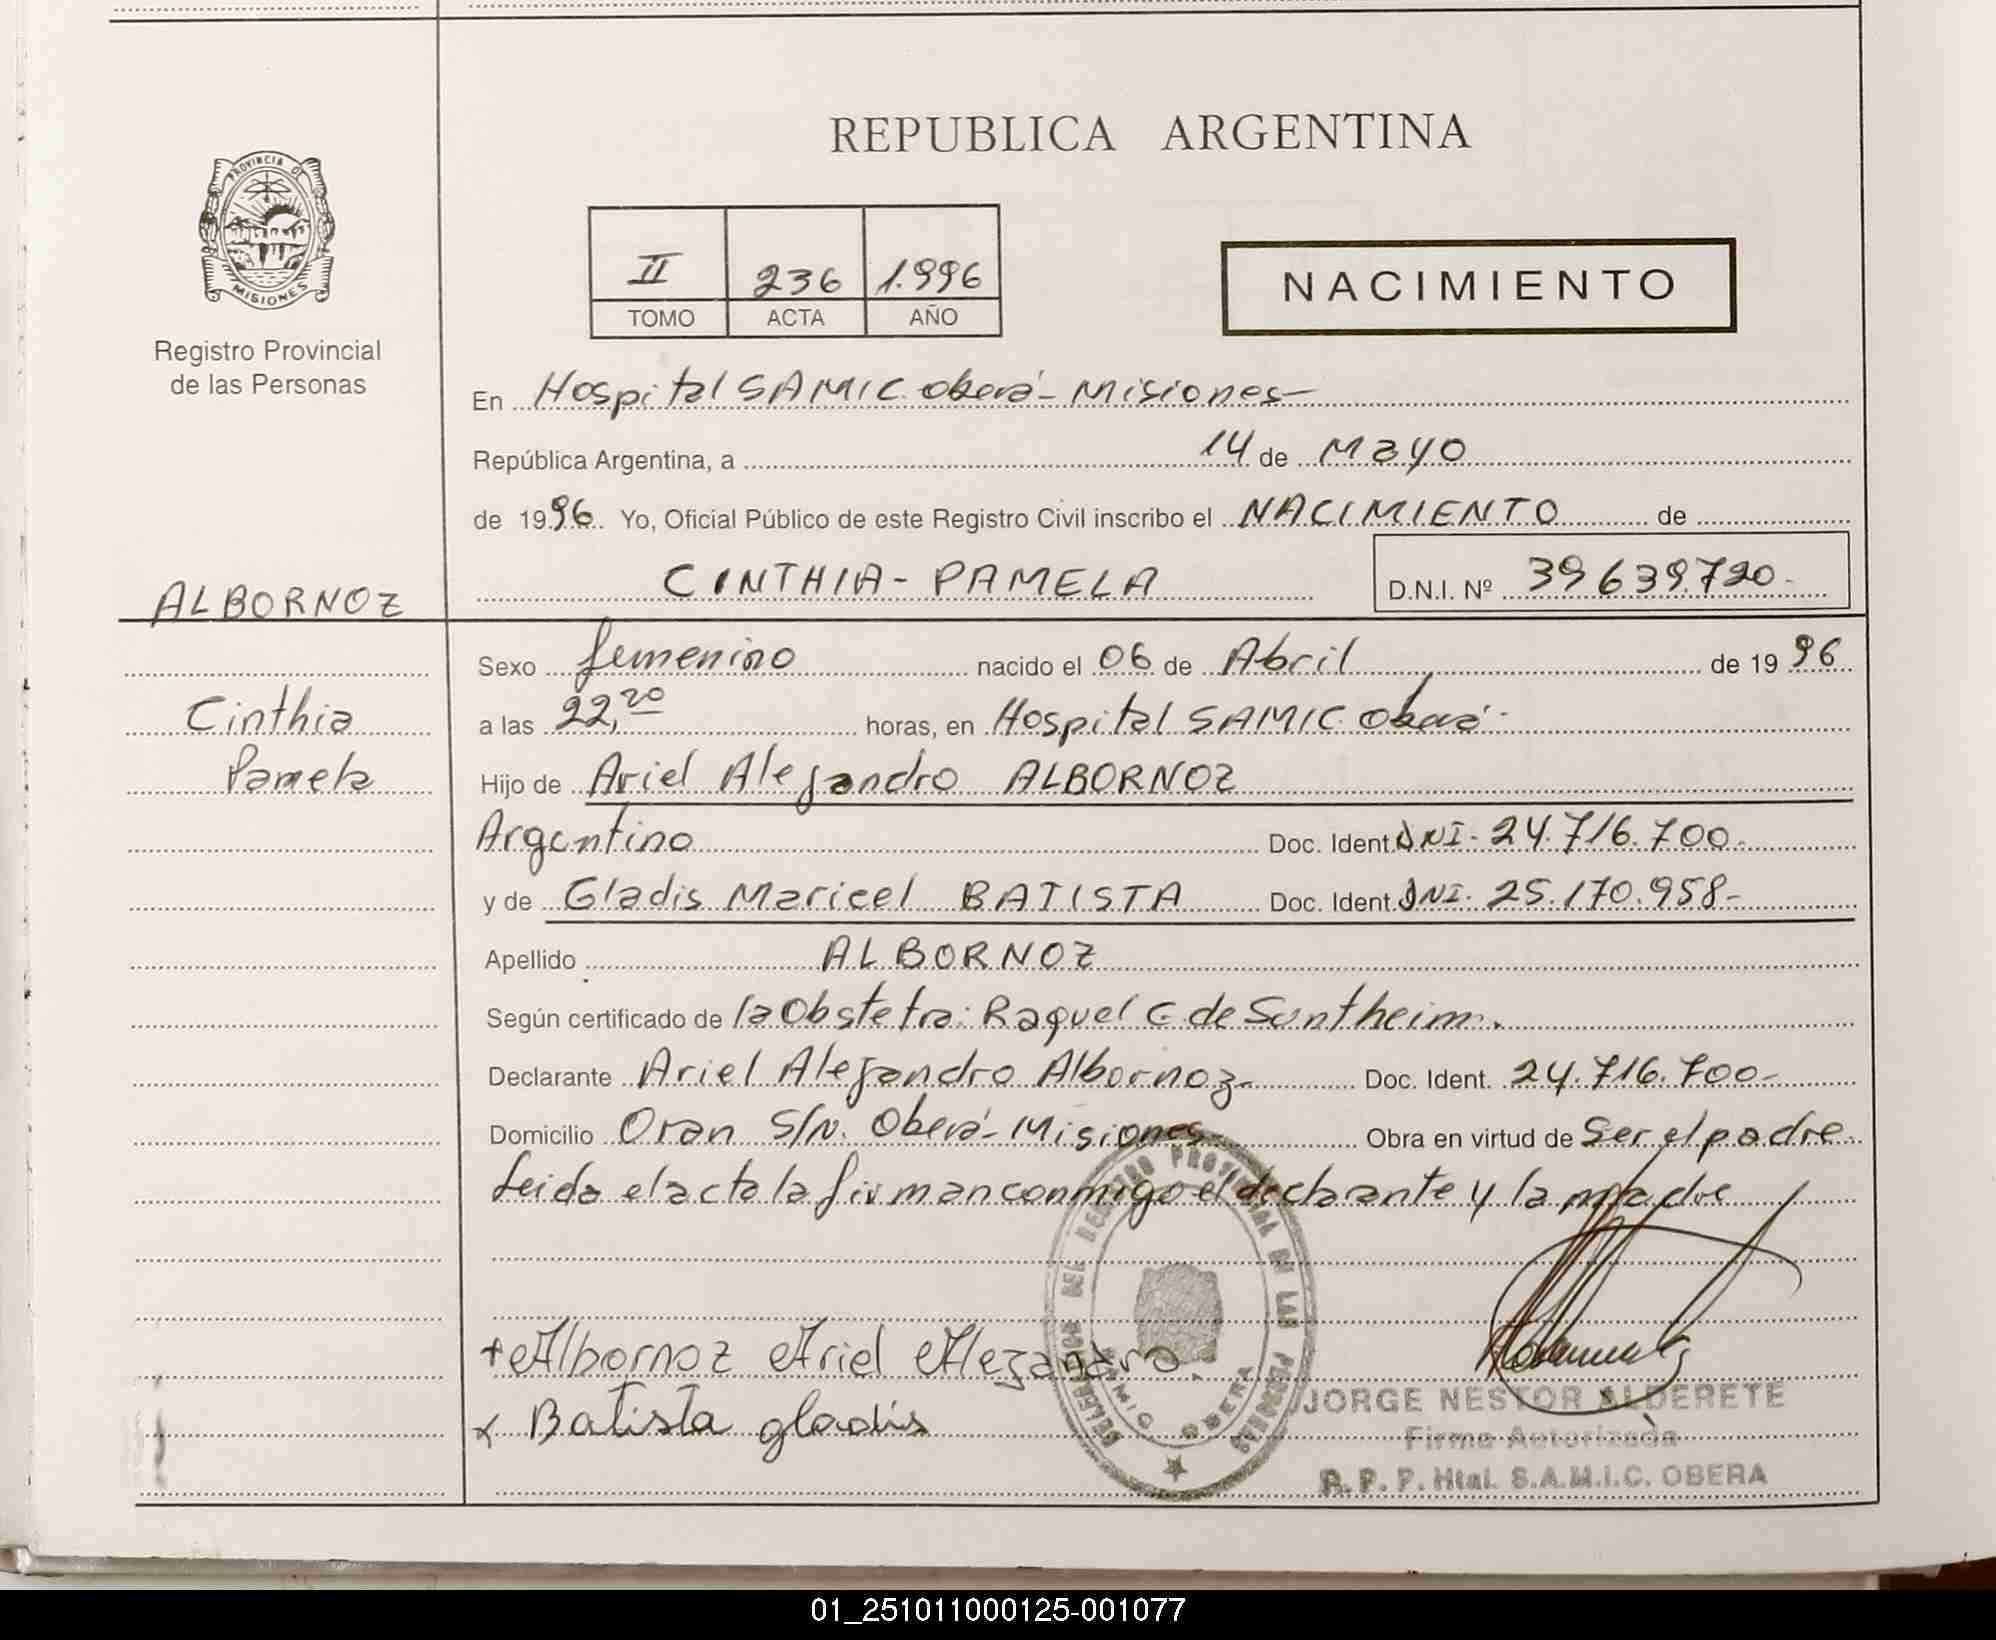 REPUBLICA ARGENTINA
PROVINCIA DE
MISIONES
Registro Provincial
de las Personas
II 236 1.996
TOMO ACTA AÑO
NACIMIENTO
En Hospital SAMIC Oberá - Misiones -
República Argentina, a 14 de Mayo
de 1996 Yo, Oficial Público de este Registro Civil inscribo el NACIMIENTO de
CINTHIA - PAMELA D.N.I. Nº 39639.720-
ALBORNOZ
Cinthia
Pamela
Sexo femenino nacido el 06 de Abril de 1996
a las 22,20 horas, en Hospital SAMIC Oberá -
Hijo de Ariel Alejandro ALBORNOZ
Argentino Doc. Ident. DNI- 24.716.700-
y de Gladis Maricel BATISTA Doc. Ident. DNI- 25.170.958-
Apellido ALBORNOZ
Según certificado de la Obstetra: Raquel C. de Suntheim.
Declarante Ariel Alejandro Albornoz- Doc. Ident. 24.716.700-
Domicilio Oran S/N. Oberá - Misiones Obra en virtud de Ser el padre
Leida el acta la firman conmigo el declarante y la madre
+ Albornoz Ariel Alejandro
x Batista gladis
JORGE NESTOR ALDERETE
Firma Autorizada
R. P. P. Htal. S.A.M.I.C. OBERA
DEL REGISTRO PROVINCIAL DE LAS PERSONAS
OBERA
01_251011000125-001077